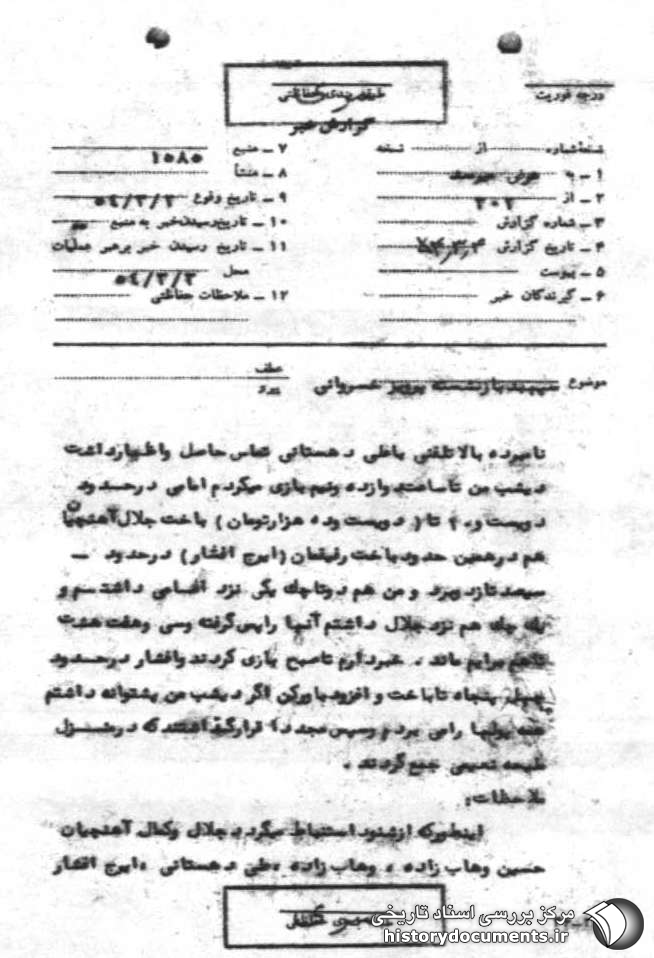 درجه فوریت
طبقه‌بندی حفاظتی
گزارش خبر
نسخه شماره از نسخه
۱ ـ به
۲ ـ از ۲۰۲
۳ ـ شماره گزارش
۴ ـ تاریخ گزارش
۵ ـ پیوست
۶ ـ گیرندگان خبر
۷ ـ منبع ۱۰۸۵
۸ ـ منشأ
۹ ـ تاریخ وقوع ۵۴/۳/۲
۱۰ ـ تاریخ رسیدن خبر به منبع
۱۱ ـ تاریخ رسیدن خبر برهبر عملیات
محل ۵۴/۳/۳
۱۲ ـ ملاحظات حفاظتی
موضوع سپهبد بازنشسته پرویز خسروانی
عطف
نامبرده بالا تلفنی باعلی دهستانی تماس حاصل واظهارداشت
دیشب من تا ساعت دوازده ونیم بازی میکردم امامی درحدود
دویست و تا ( دویست وده هزارتومان ) باخت جلال آهنچیان
هم درهمین حدود باخت رفیقمان ( ایرج افشار ) درحدود ـ
سیصد تا زد وبرد و من هم دوتا چك یکی نزد داشتم و
یك چك هم نزد جلال داشتم آنها را پس گرفته وسی وهفت هشت
تا هم برایم ماند . خبردارم تا صبح بازی کردند وافشار درحدود
چهل پنجاه تا باخت و افزود باورکن اگر دیشب من پشتوانه داشتم
همه پولها را می بردم وسپس مجددا قرارگذاشتند که درمنزل
جمع گردند .
ملاحظات :
اینطورکه ازشنود استنباط میگردد جلال وکمال آهنچیان
حسین وهاب زاده ، وهاب زاده ،علی دهستانی ،ایرج افشار
طبقه‌بندی حفاظتی
مرکز بررسی اسناد تاریخی
historydocuments.ir